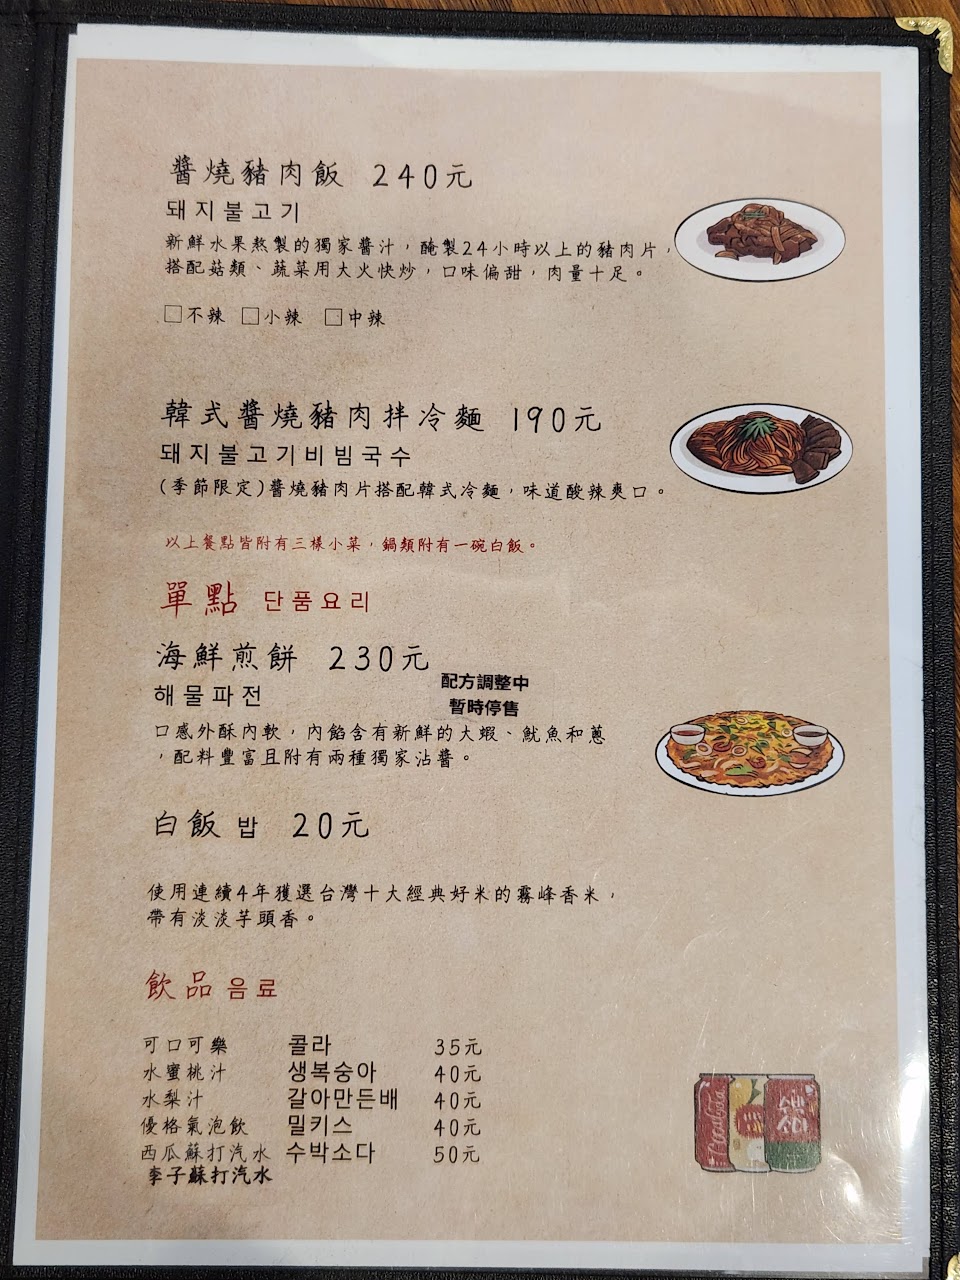 醬燒豬肉飯 240元
돼지불고기
新鮮水果熬製的獨家醬汁，醃製24小時以上的豬肉片，
搭配菇類、蔬菜用大火快炒，口味偏甜，肉量十足。
□不辣 □小辣 □中辣
韓式醬燒豬肉拌冷麵 190元
돼지불고기비빔국수
(季節限定)醬燒豬肉片搭配韓式冷麵，味道酸辣爽口。
以上餐點皆附有三樣小菜，鍋類附有一碗白飯。
單點 단품요리
海鮮煎餅 230元
해물파전
配方調整中
暫時停售
口感外酥內軟，內餡含有新鮮的大蝦、魷魚和蔥
，配料豐富且附有兩種獨家沾醬。
白飯 밥 20元
使用連續4年獲選台灣十大經典好米的霧峰香米，
帶有淡淡芋頭香。
飲品 음료
可口可樂 콜라 35元
水蜜桃汁 생복숭아 40元
水梨汁 갈아만든배 40元
優格氣泡飲 밀키스 40元
西瓜蘇打汽水 수박소다 50元
李子蘇打汽水